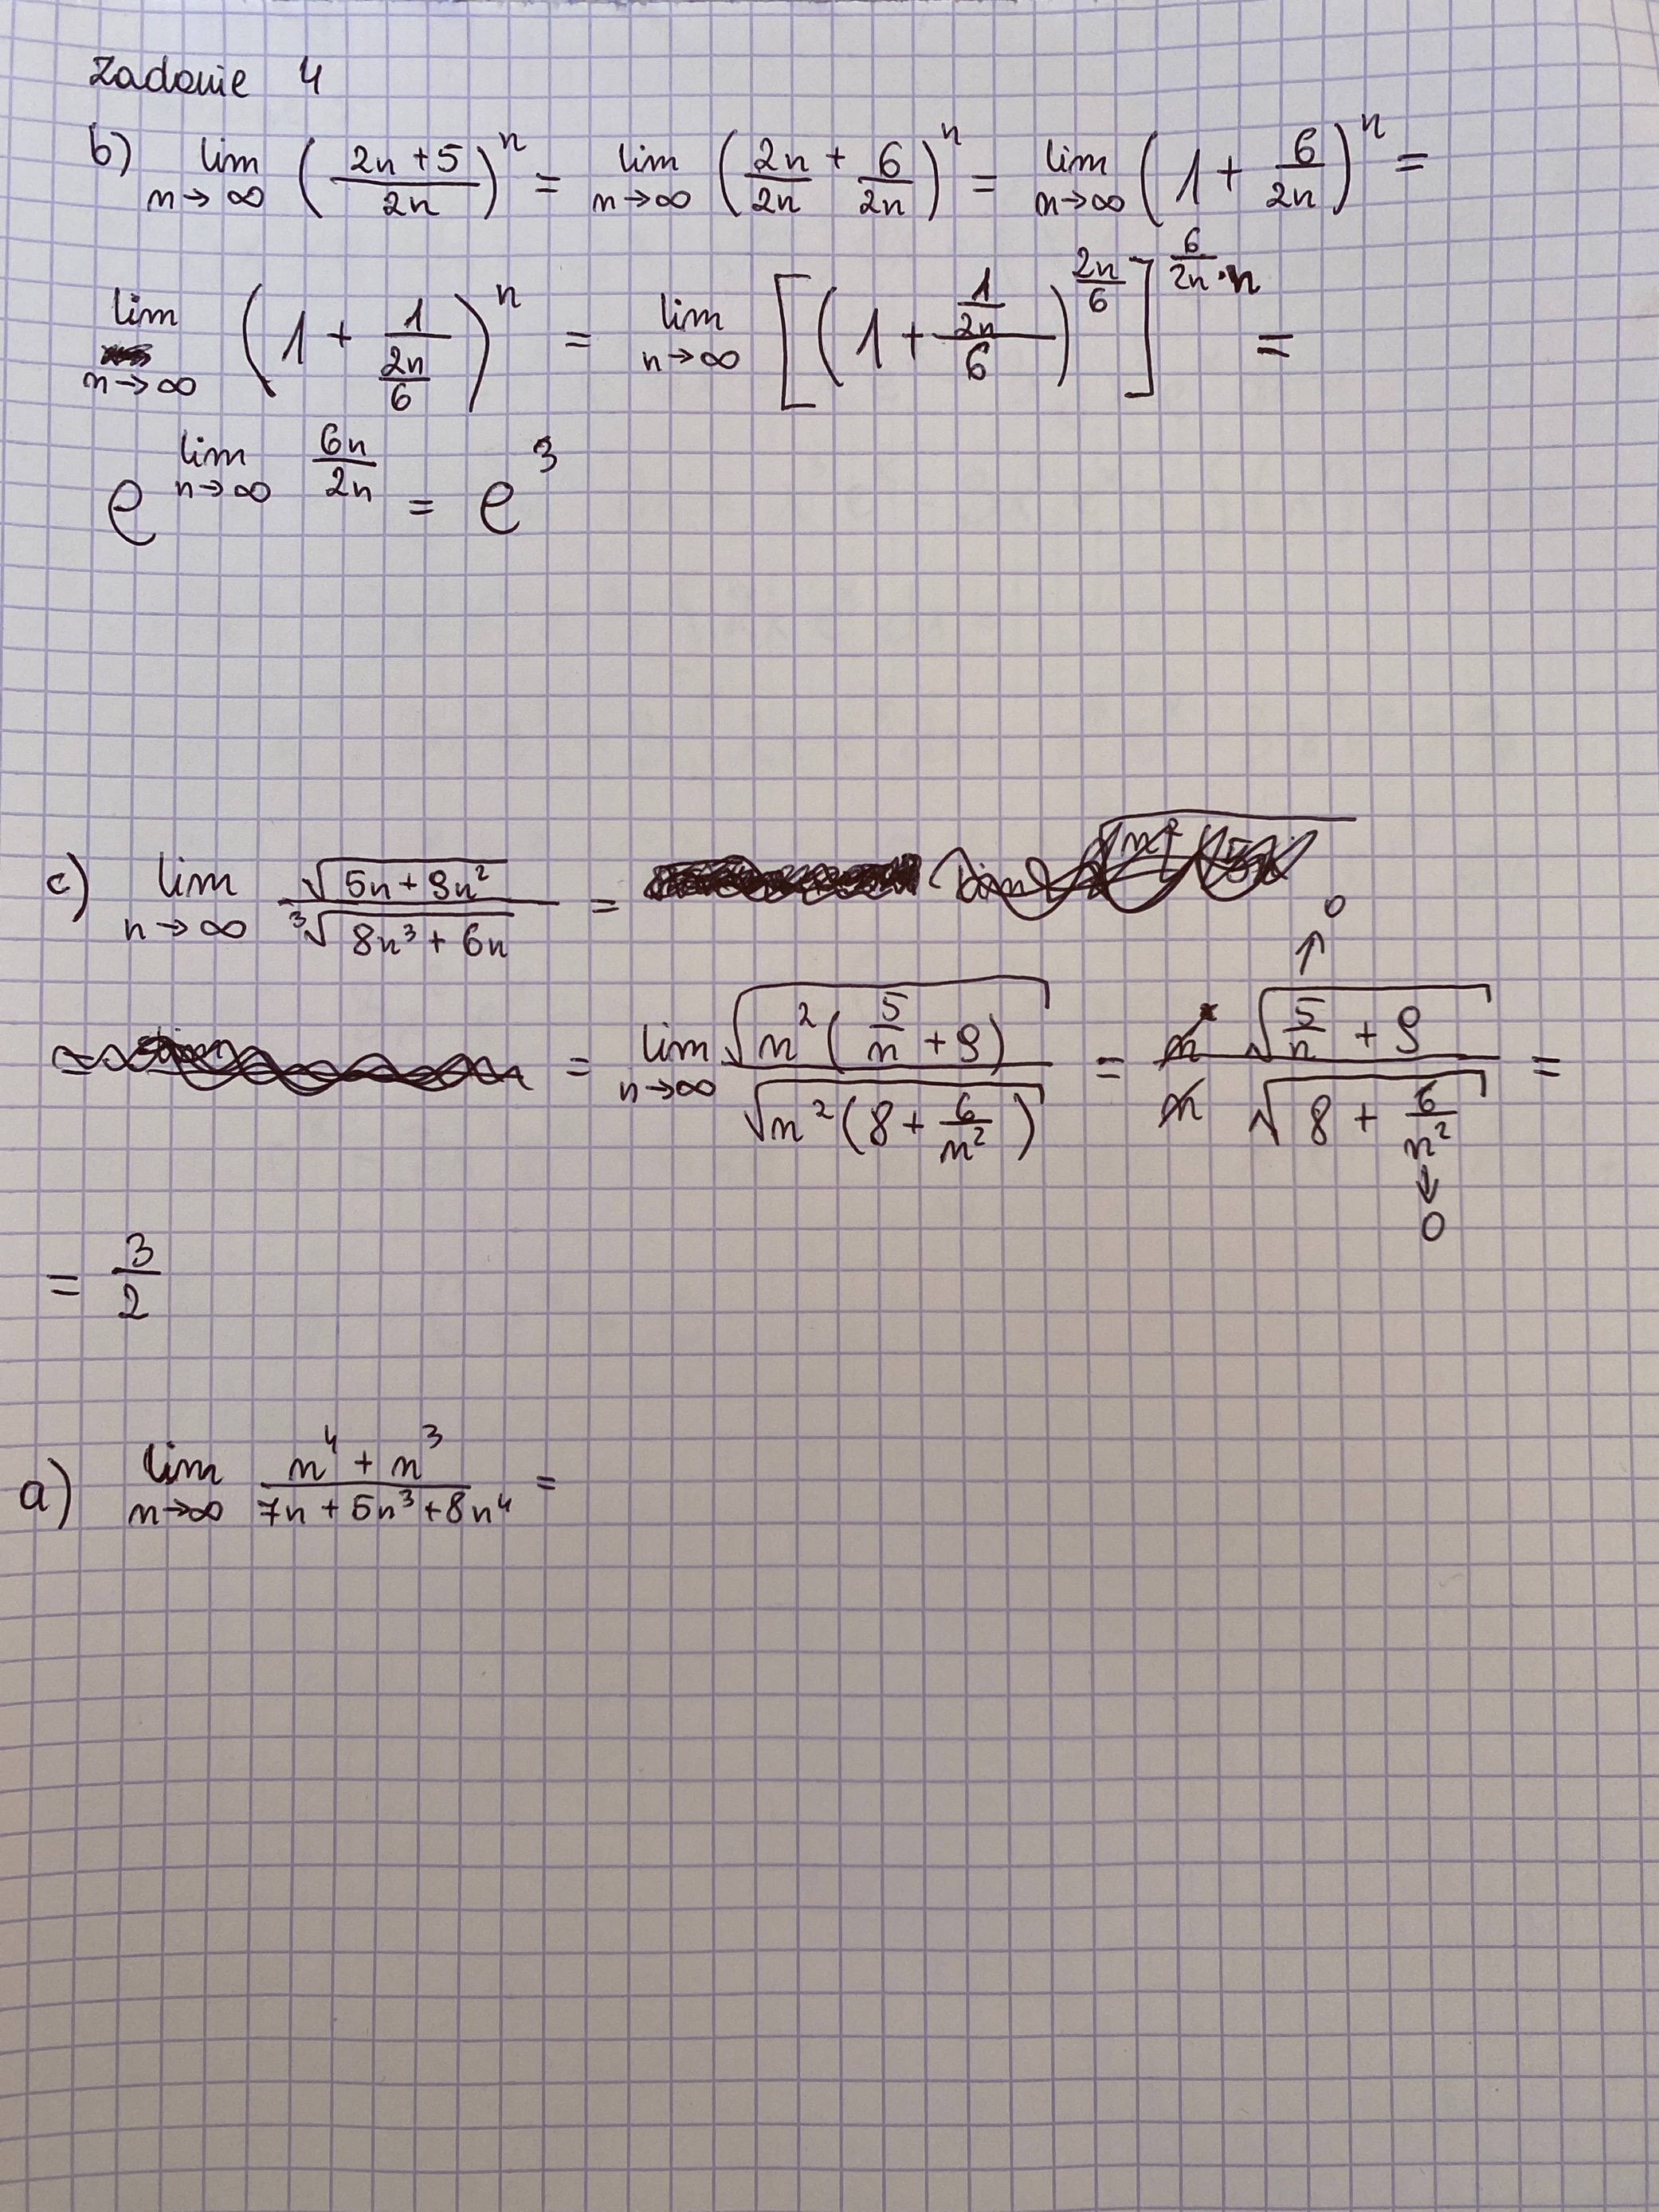 Zadanie 4
b) lim n→∞ (2n+5/2n)^n = lim n→∞ (2n/2n + 6/2n)^n = lim n→∞ (1 + 6/2n)^n =
lim n→∞ (1 + 1/(2n/6))^n = lim n→∞ [(1 + (1/2n)/6)^(2n/6)]^(6/2n · n) =
e^(lim n→∞ 6n/2n) = e^3
c) lim n→∞ √(5n+9n²) / ³√(8n³+6n) =
= lim n→∞ √(n²(5/n + 9)) / √(n²(8 + 6/n²)) = n √(5/n + 9) / n √(8 + 6/n²) =
↑ 0
↓ 0
= 3/2
a) lim n→∞ (n⁴ + n³) / (7n + 5n³ + 8n⁴) =